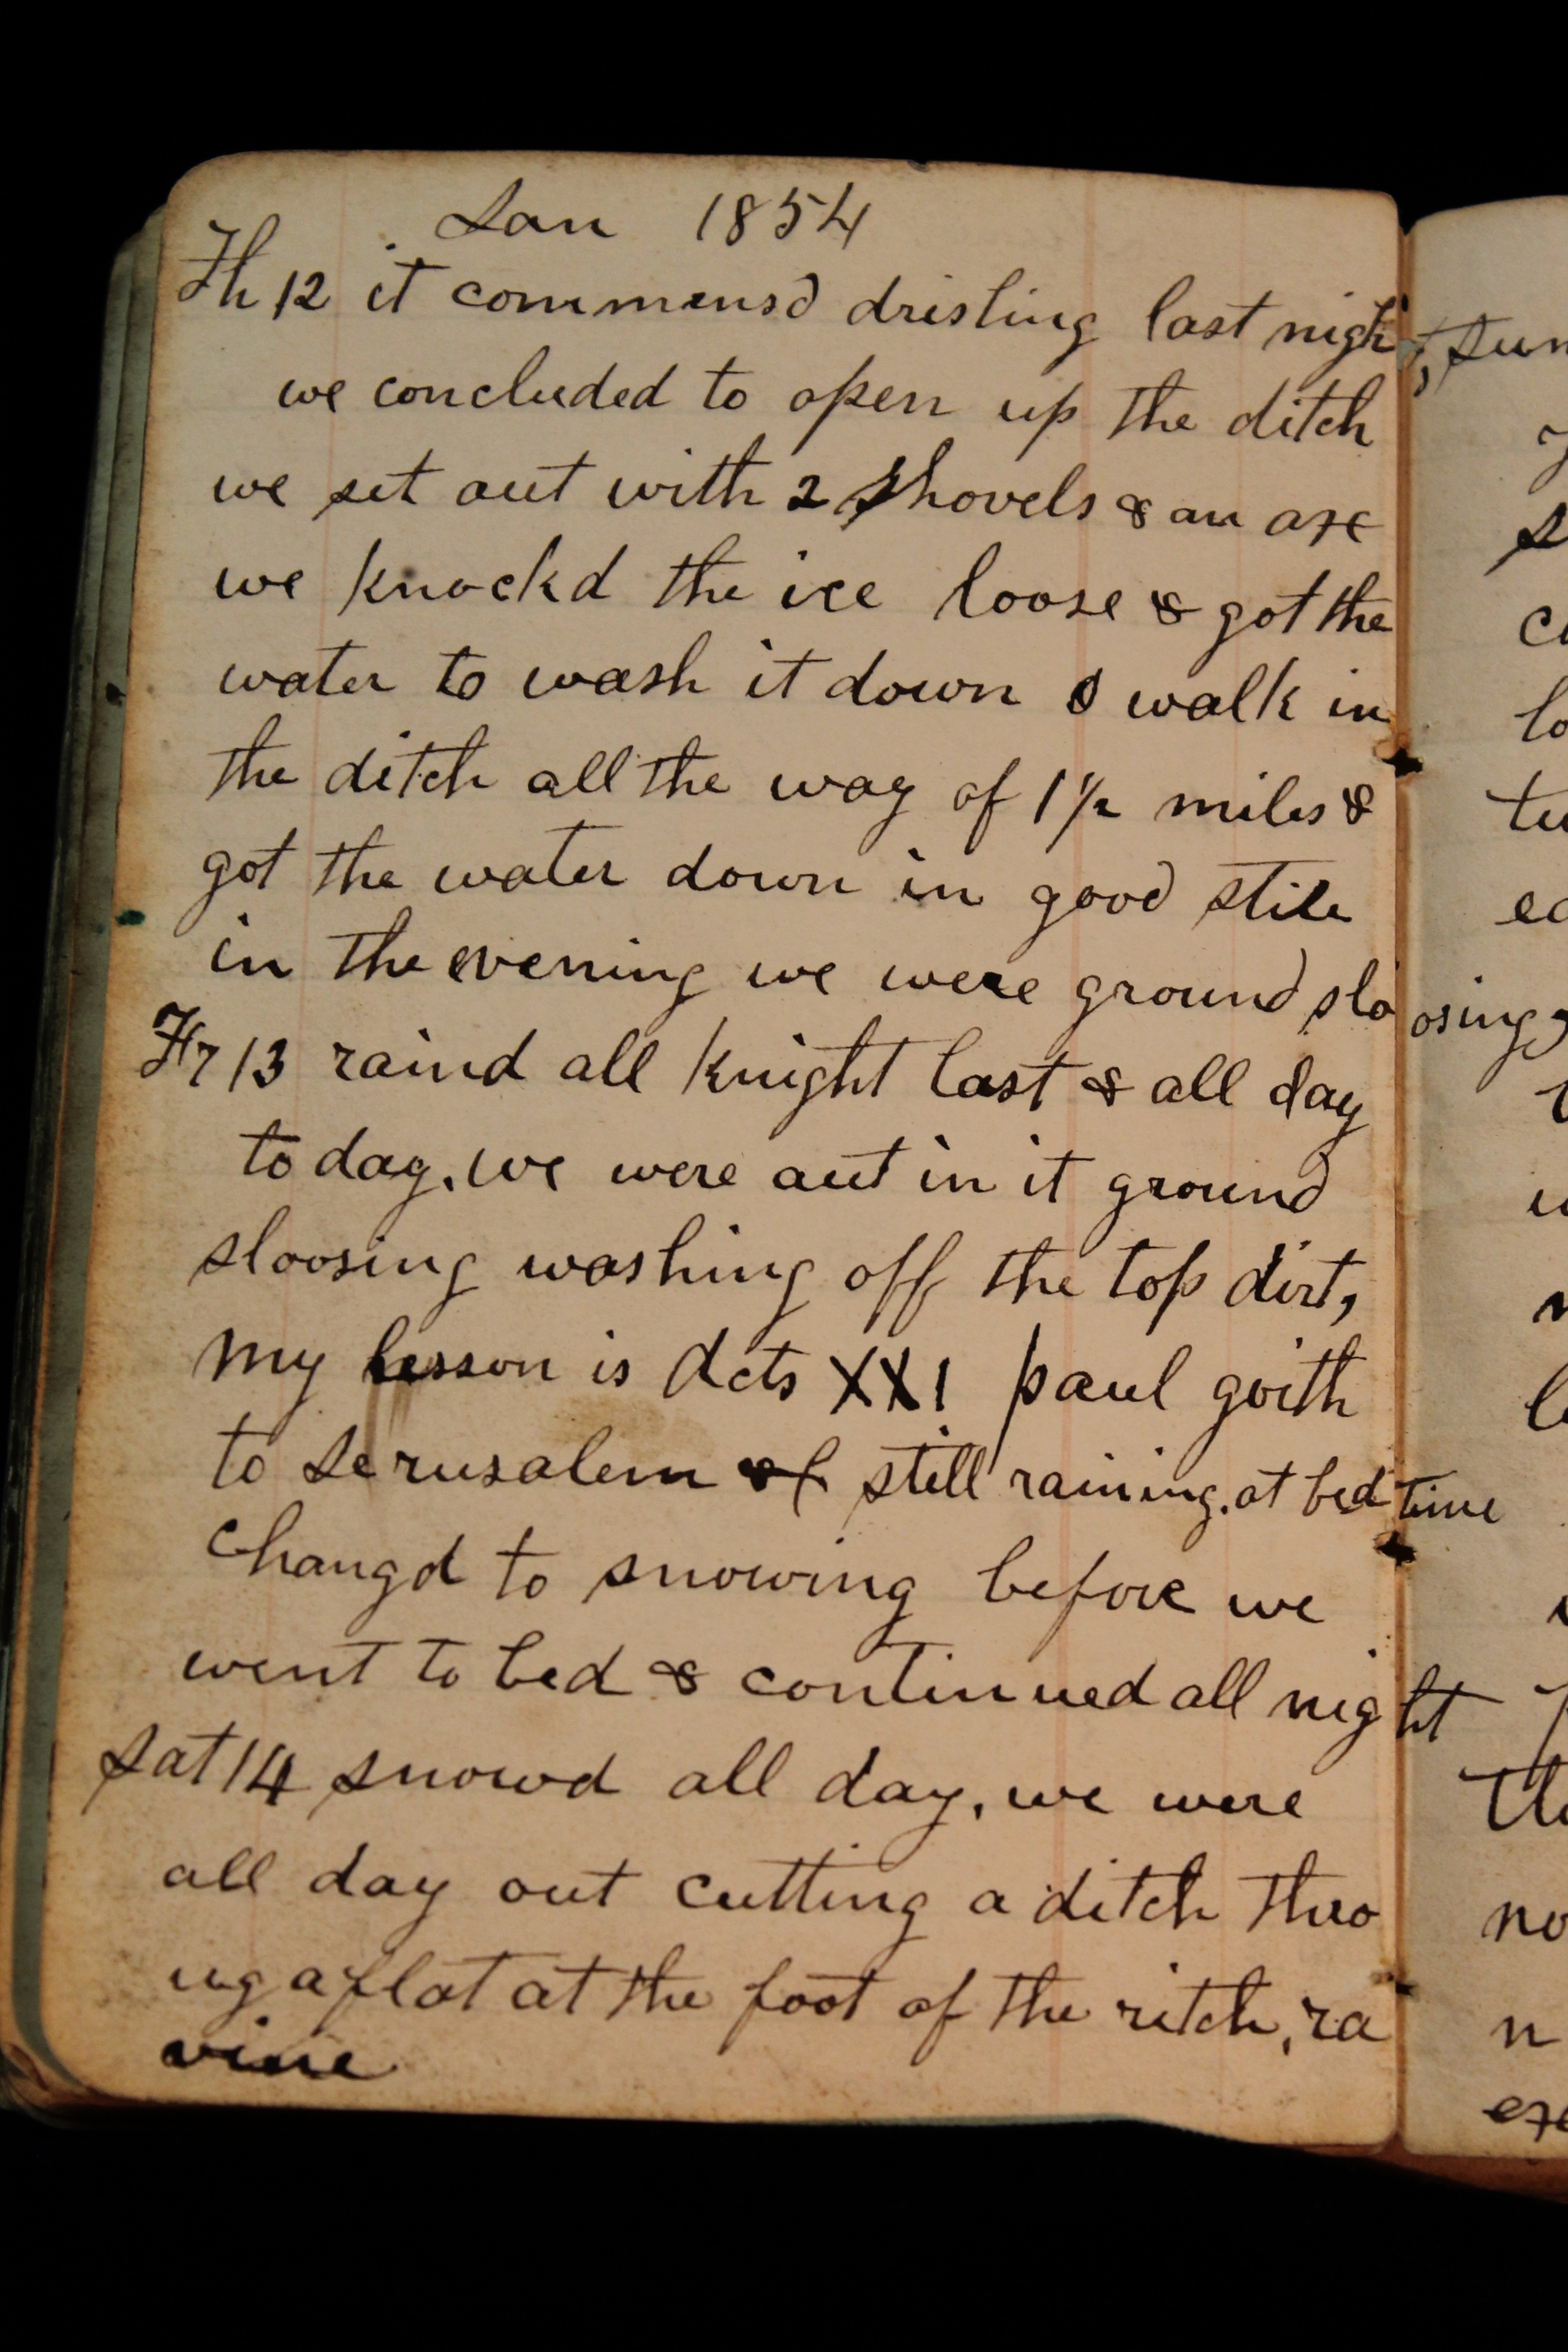 Jan 1854
Th 12 it commensd drisling last night,
we concluded to open up the ditch
we set out with 2 shovels & an axe
we knockd the ice loose & got the
water to wash it down & walk in
the ditch all the way of 1 1/2 miles &
got the water down in good stile
in the evening we were ground sloosing
Fr 13 raind all knight last & all day
to day. we were out in it ground
sloosing washing off the top dirt,
my lesson is Acts XXI paul goith
to Jerusalem & still raining. at bed time
changd to snowing before we
went to bed & continued all night
Sat 14 snowd all day, we were
all day out cutting a ditch thro
ug a flat at the foot of the ritch, ra
vine